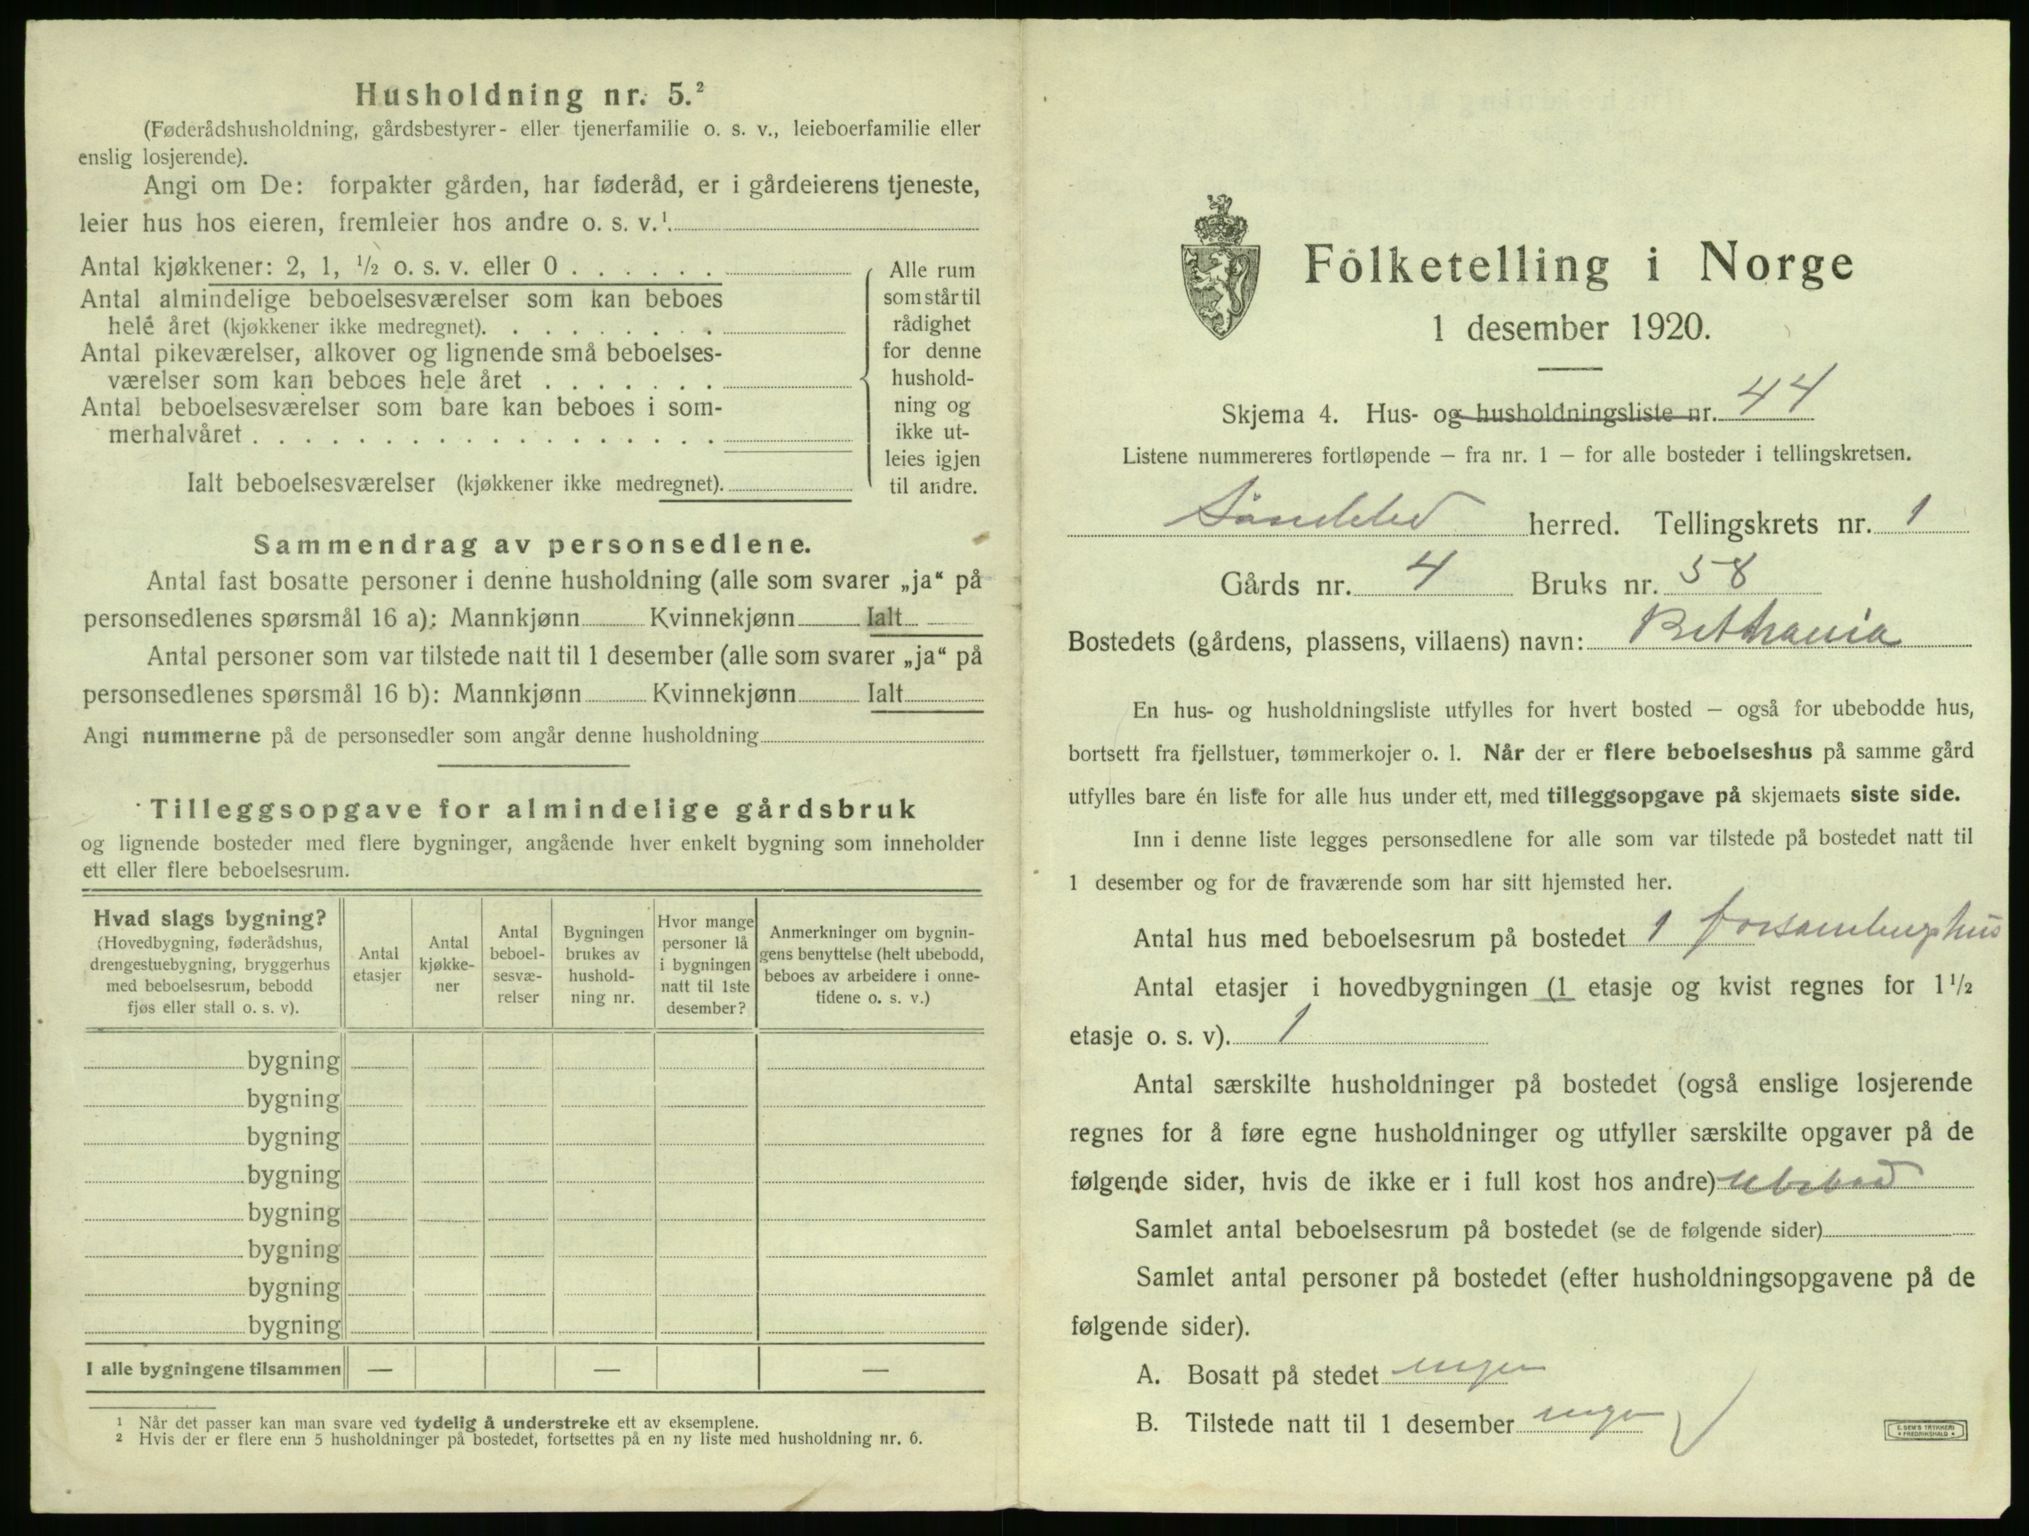 Husholdning nr. 5.²
(Føderådshusholdning, gårdsbestyrer- eller tjenerfamilie o. s. v., leieboerfamilie eller
enslig losjerende).
Angi om De: forpakter gården, har føderåd, er i gårdeierens tjeneste,
leier hus hos eieren, fremleier hos andre o. s. v.¹.
Antal kjøkkener: 2, 1, ½ o. s. v. eller 0 . . . . . .
Antal almindelige beboelsesværelser som kan beboes
hele året (kjøkkener ikke medregnet). . . . . . . . .
Antal pikeværelser, alkover og lignende små beboelses-
værelser som kan beboes hele året . . . . . . .
Antal beboelsesværelser som bare kan beboes i som-
merhalvåret . . . . . . . . . . . . . . . . . .
Ialt beboelsesværelser (kjøkkener ikke medregnet).
Alle rum
som står til
rådighet
for denne
hushold-
ning og
ikke ut-
leies igjen
til andre.
Sammendrag av personsedlene.
Antal fast bosatte personer i denne husholdning (alle som svarer „ja“ på
personsedlenes spørsmål 16 a): Mannkjønn Kvinnekjønn Ialt
Antal personer som var tilstede natt til 1 desember (alle som svarer „ja“ på
personsedlenes spørsmål 16 b): Mannkjønn Kvinnekjønn Ialt
Angi nummerne på de personsedler som angår denne husholdning
Tilleggsopgave for almindelige gårdsbruk
og lignende bosteder med flere bygninger, angående hver enkelt bygning som inneholder
ett eller flere beboelsesrum.
Hvad slags bygning?
(Hovedbygning, føderådshus,
drengestuebygning, bryggerhus
med beboelsesrum, bebodd
fjøs eller stall o. s. v).
Antal
etasjer
Antal
kjøkke-
ner
Antal
beboel-
sesvæ-
relser
Bygningen
brukes av
hushold-
ning nr.
Hvor mange
personer lå
i bygningen
natt til 1ste
desember?
Anmerkninger om bygnin-
gens benyttelse (helt ubebodd,
beboes av arbeidere i onne-
tidene o. s. v.)
bygning
bygning
bygning
bygning
bygning
bygning
bygning
bygning
I alle bygningene tilsammen — — —
¹ Når det passer kan man svare ved tydelig å understreke ett av eksemplene.
² Hvis der er flere enn 5 husholdninger på bostedet, fortsettes på en ny liste med husholdning nr. 6.
Folketelling i Norge
1 desember 1920.
Skjema 4. Hus- og husholdningsliste nr. 44
Listene nummereres fortløpende – fra nr. 1 – for alle bosteder i tellingskretsen.
Søndeled herred. Tellingskrets nr. 1
Gårds nr. 4 Bruks nr. 58
Bostedets (gårdens, plassens, villaens) navn: Bethania
En hus- og husholdningsliste utfylles for hvert bosted – også for ubebodde hus,
bortsett fra fjellstuer, tømmerkojer o. l. Når der er flere beboelseshus på samme gård
utfylles bare én liste for alle hus under ett, med tilleggsopgave på skjemaets siste side.
Inn i denne liste legges personsedlene for alle som var tilstede på bostedet natt til
1 desember og for de fraværende som har sitt hjemsted her.
Antal hus med beboelsesrum på bostedet 1 forsamlingshus
Antal etasjer i hovedbygningen (1 etasje og kvist regnes for 1½
etasje o. s. v). 1
Antal særskilte husholdninger på bostedet (også enslige losjerende
regnes for å føre egne husholdninger og utfyller særskilte opgaver på de
følgende sider, hvis de ikke er i full kost hos andre) ubebod
Samlet antal beboelsesrum på bostedet (se de følgende sider)
Samlet antal personer på bostedet (efter husholdningsopgavene på de
følgende sider).
A. Bosatt på stedet ingen
B. Tilstede natt til 1 desember ingen
E. SEM'S TRYKKERI
FREDRIKSHALD